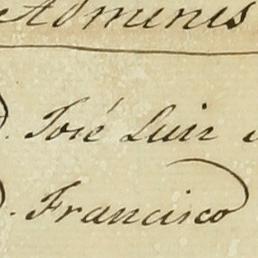 Adminis
D. José Luis
D. Francisco